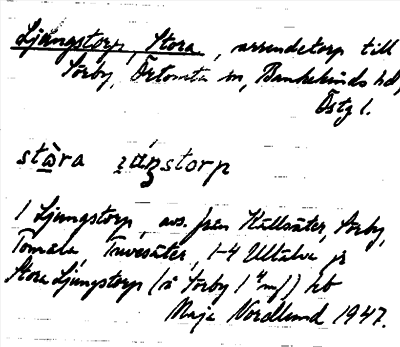 Ljungstorp, Stora, arrendetorp till
Sörby, Örtomta sn, Bankekinds hd,
Östg l.
stòra
1 Ljungstorp, avs. från Källsäter, Sörby,
Tomala, Truvesäter, 1-4 Ullälva jr
Stora Ljungstorp (å Sörby 1⁴ mj)) hb
Maja Nordlund 1947.